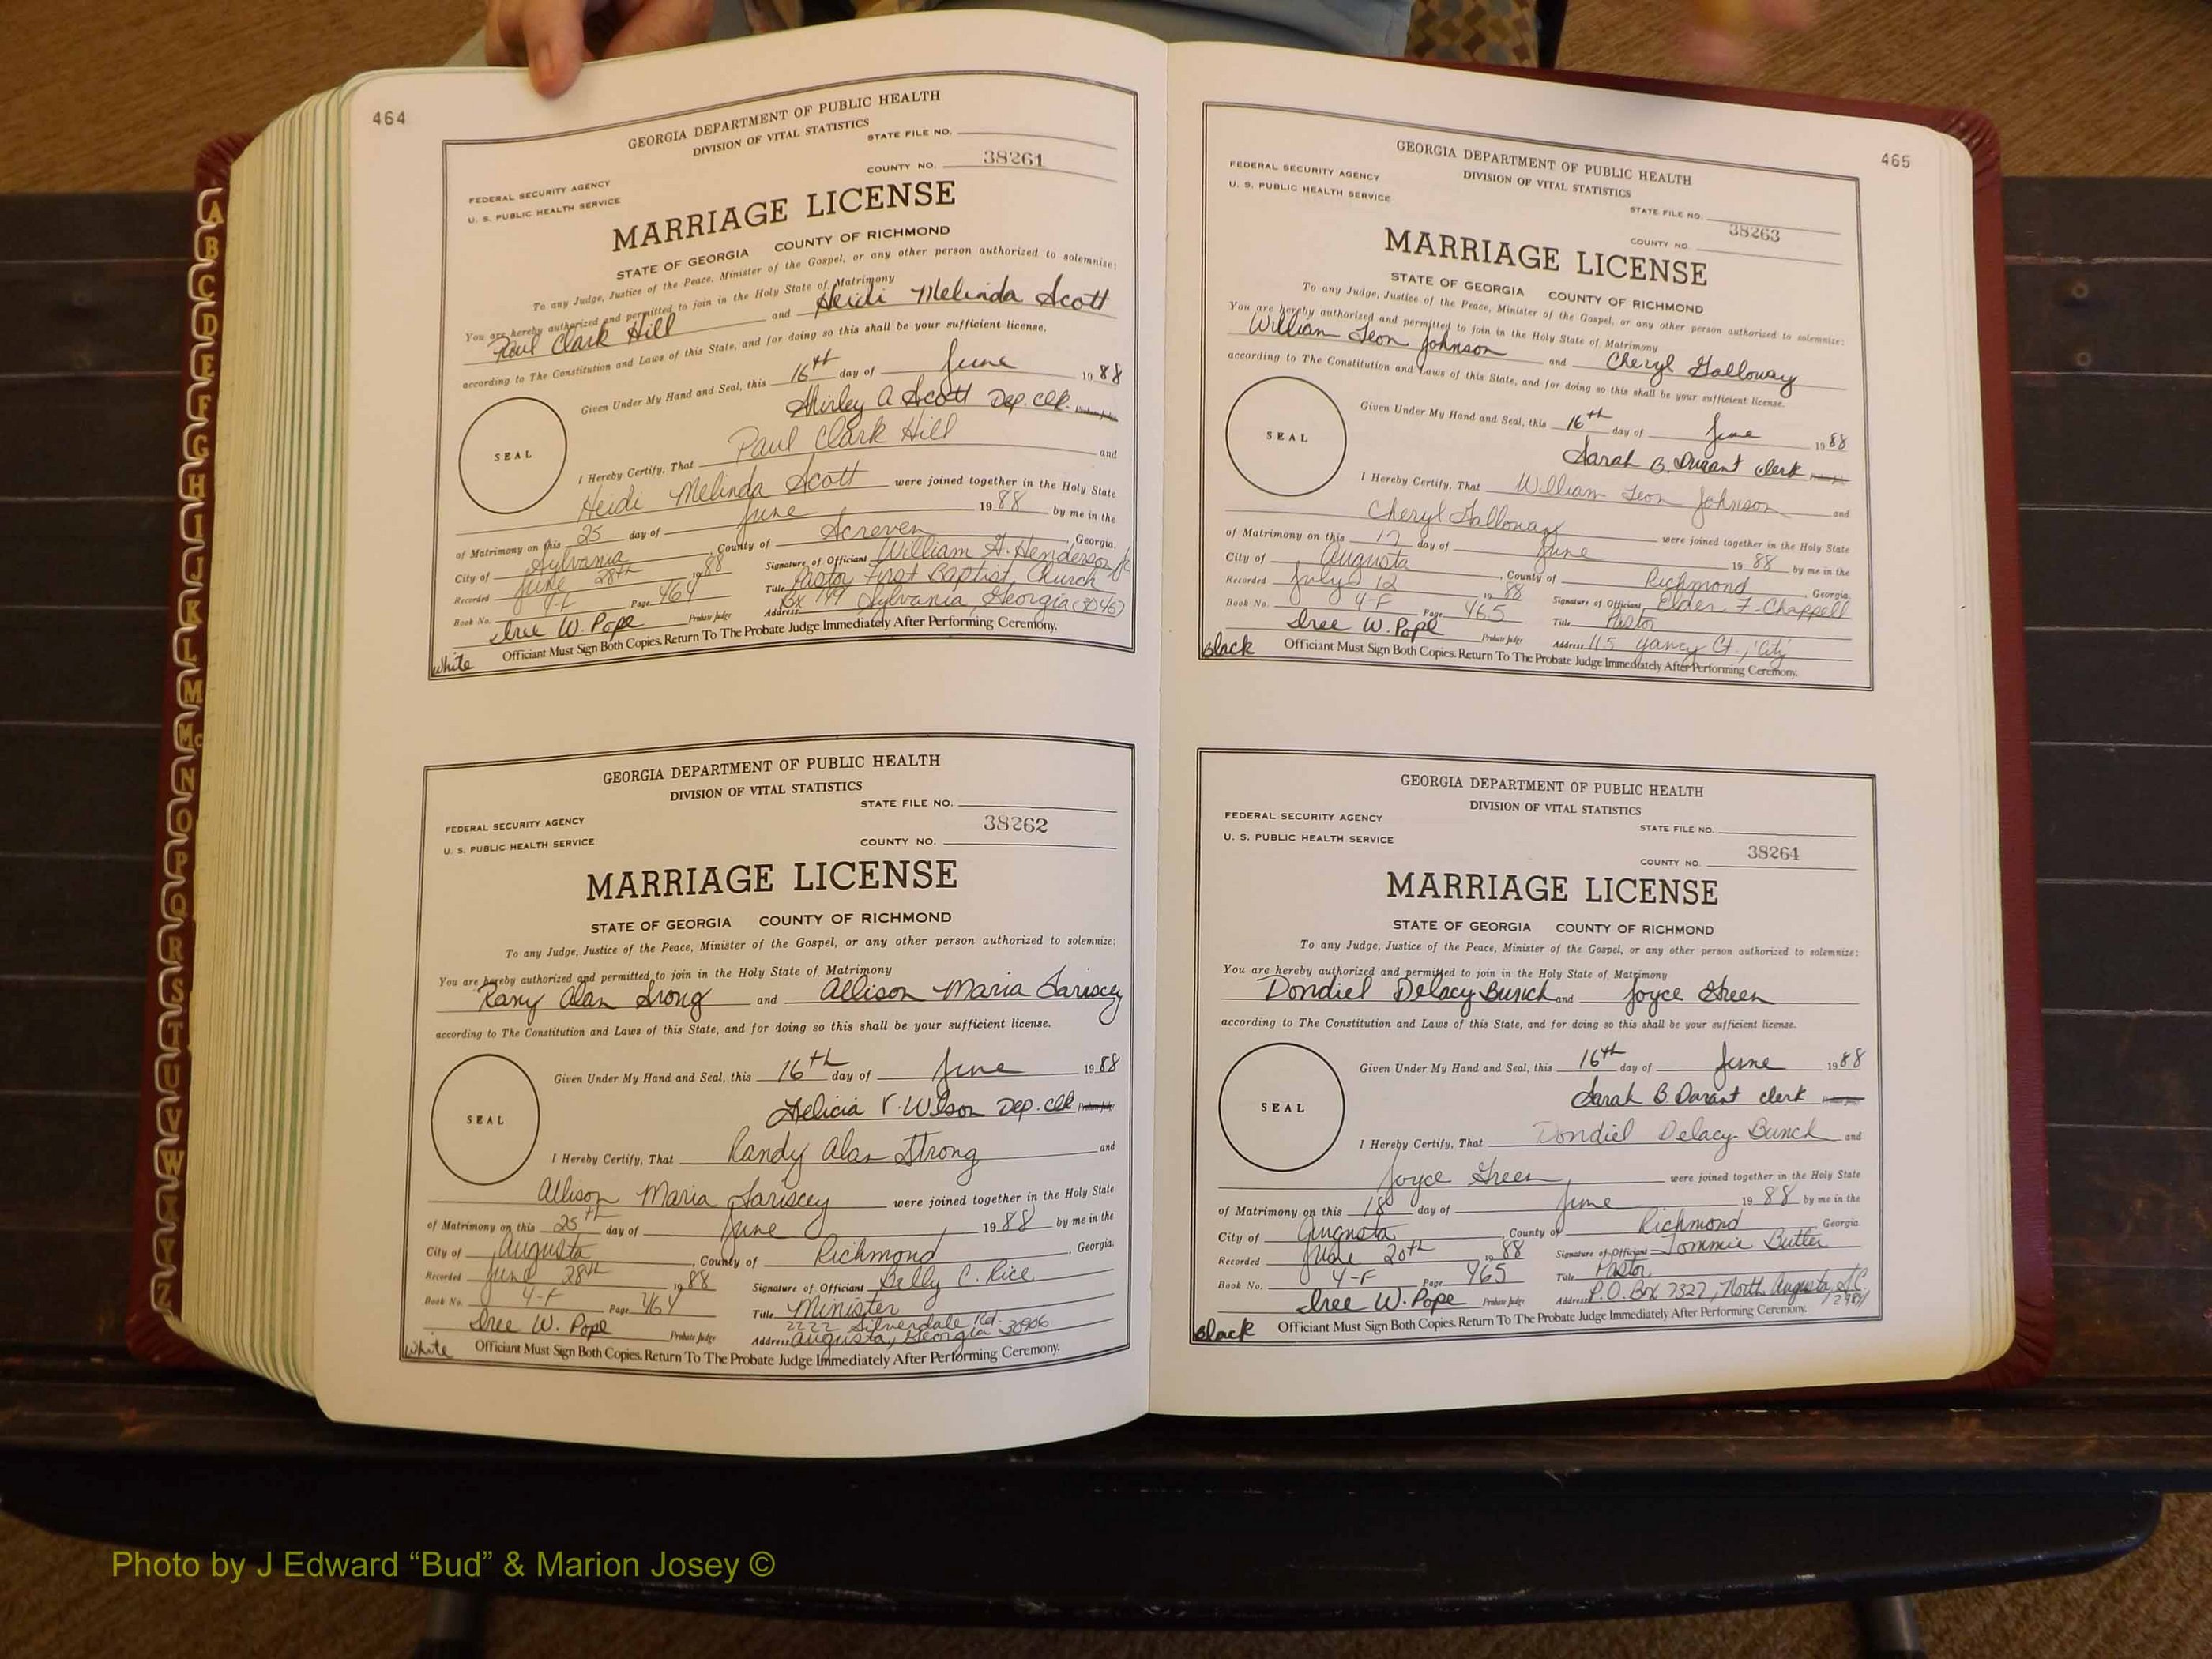 464
GEORGIA DEPARTMENT OF PUBLIC HEALTH
DIVISION OF VITAL STATISTICS
STATE FILE NO.
COUNTY NO. 38261
FEDERAL SECURITY AGENCY
U. S. PUBLIC HEALTH SERVICE
MARRIAGE LICENSE
STATE OF GEORGIA COUNTY OF RICHMOND
To any Judge, Justice of the Peace, Minister of the Gospel, or any other person authorized to solemnize:
You are hereby authorized and permitted to join in the Holy State of Matrimony
Paul Clark Hill and Heidi Melinda Scott
according to The Constitution and Laws of this State, and for doing so this shall be your sufficient license.
Given Under My Hand and Seal, this 16th day of June 1988
Shirley A. Scott Dep. Clk.
SEAL
I Hereby Certify, That Paul Clark Hill and
Heidi Melinda Scott were joined together in the Holy State
of Matrimony on this 25 day of June 1988 by me in the
City of Sylvania, County of Screven, Georgia.
Recorded June 28th 1988 Signature of Officiant William H. Henderson Jr
Book No. 4-F Page 464 Title Pastor First Baptist Church
Iree W. Pope Probate Judge Address Bx Sylvania, Georgia
White Officiant Must Sign Both Copies. Return To The Probate Judge Immediately After Performing Ceremony.
GEORGIA DEPARTMENT OF PUBLIC HEALTH
DIVISION OF VITAL STATISTICS
STATE FILE NO.
38262
FEDERAL SECURITY AGENCY
U. S. PUBLIC HEALTH SERVICE COUNTY NO.
MARRIAGE LICENSE
STATE OF GEORGIA COUNTY OF RICHMOND
To any Judge, Justice of the Peace, Minister of the Gospel, or any other person authorized to solemnize:
You are hereby authorized and permitted to join in the Holy State of Matrimony
Rany Alan Srong and Allison Maria Lariscey
according to The Constitution and Laws of this State, and for doing so this shall be your sufficient license.
Given Under My Hand and Seal, this 16th day of June 1988
Felicia V. Wilson Dep. Clk
SEAL
I Hereby Certify, That Randy Alan Strong and
Allison Maria Lariscey were joined together in the Holy State
of Matrimony on this 25th day of June 1988 by me in the
City of Augusta, County of Richmond, Georgia.
Recorded June 28th 1988 Signature of Officiant Billy C. Rice
Book No. 4-F Page 464 Title Minister
2222 Silverdale Rd.
Iree W. Pope Probate Judge Address Augusta, Georgia 30906
White Officiant Must Sign Both Copies. Return To The Probate Judge Immediately After Performing Ceremony.
465
GEORGIA DEPARTMENT OF PUBLIC HEALTH
DIVISION OF VITAL STATISTICS
FEDERAL SECURITY AGENCY
U. S. PUBLIC HEALTH SERVICE
STATE FILE NO.
38263
COUNTY NO.
MARRIAGE LICENSE
STATE OF GEORGIA COUNTY OF RICHMOND
To any Judge, Justice of the Peace, Minister of the Gospel, or any other person authorized to solemnize:
You are hereby authorized and permitted to join in the Holy State of Matrimony
William Leon Johnson and Cheryl Galloway
according to The Constitution and Laws of this State, and for doing so this shall be your sufficient license.
Given Under My Hand and Seal, this 16th day of June 1988
Sarah B. Durant clerk
SEAL
I Hereby Certify, That William Leon Johnson and
Cheryl Galloway were joined together in the Holy State
of Matrimony on this 17 day of June 1988 by me in the
City of Augusta, County of Richmond, Georgia.
Recorded July 12 1988 Signature of Officiant Elder F. Chappell
Book No. 4-F Page 465 Title Pastor
Iree W. Pope Probate Judge Address 115 Yancy Ct., City
Black Officiant Must Sign Both Copies. Return To The Probate Judge Immediately After Performing Ceremony.
GEORGIA DEPARTMENT OF PUBLIC HEALTH
DIVISION OF VITAL STATISTICS
FEDERAL SECURITY AGENCY
STATE FILE NO.
U. S. PUBLIC HEALTH SERVICE
COUNTY NO. 38264
MARRIAGE LICENSE
STATE OF GEORGIA COUNTY OF RICHMOND
To any Judge, Justice of the Peace, Minister of the Gospel, or any other person authorized to solemnize:
You are hereby authorized and permitted to join in the Holy State of Matrimony
Dondiel Delacy Bunch and Joyce Green
according to The Constitution and Laws of this State, and for doing so this shall be your sufficient license.
Given Under My Hand and Seal, this 16th day of June 1988
Sarah B Durant clerk
SEAL
I Hereby Certify, That Dondiel Delacy Bunch and
Joyce Green were joined together in the Holy State
of Matrimony on this 18 day of June 1988 by me in the
City of Augusta, County of Richmond Georgia.
Recorded June 20th 1988 Signature of Officiant Tommie Butler
Book No. 4-F Page 465 Title Pastor
Iree W. Pope Probate Judge Address P.O. Box 7327, North Augusta, SC
Black Officiant Must Sign Both Copies. Return To The Probate Judge Immediately After Performing Ceremony.
A
B
C
D
E
F
G
H
I
J
K
L
M
Mc
N
O
P
Q
R
S
T
U
V
W
X
Y
Z
Photo by J Edward “Bud” & Marion Josey ©